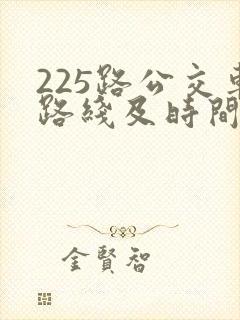 225路公交車
路綫及時間
金賢智